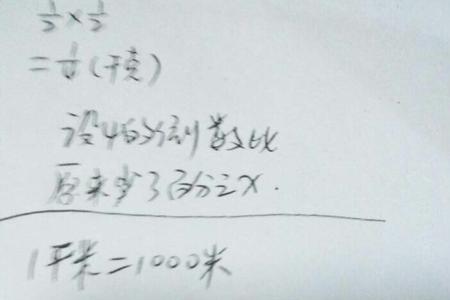 1/2 × 1/2
= 1/4 (千克)
设4的分割数比
原来少了百分之x.
1千米=1000米